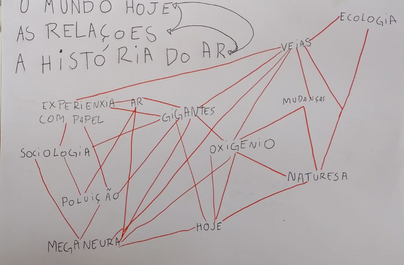 O MUNDO HOJE
AS RELAÇOES
A HISTÓRIA DO AR
ECOLOGIA
VEIAS
EXPERIENXIA
COM PAPEL
AR
GIGANTES
MUDANÇAS
SOCIOLOGIA
OXIGÊNIO
NATURESA
POLUIÇÃO
HOJE
MEGANEURA